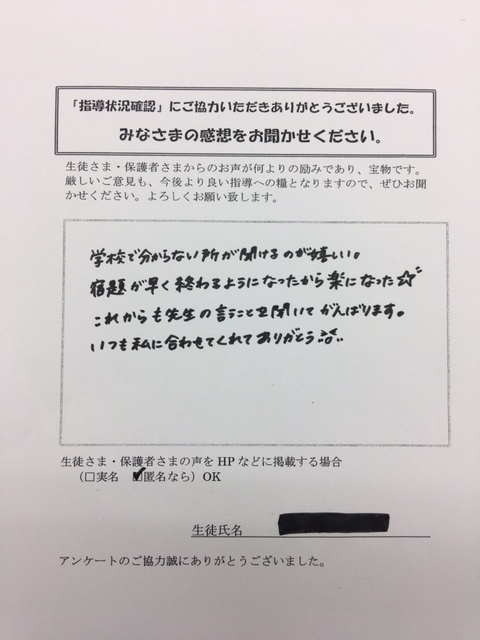 「指導状況確認」にご協力いただきありがとうございました。
みなさまの感想をお聞かせください。
生徒さま・保護者さまからのお声が何よりの励みであり、宝物です。
厳しいご意見も、今後より良い指導への糧となりますので、ぜひお聞
かせください。よろしくお願い致します。
学校で分からない所が聞けるのが嬉しい。
宿題が早く終わるようになったから楽になった☆
これからも先生の言うことを聞いてがんばります。
いつも私に合わせてくれてありがとう
生徒さま・保護者さまの声をHPなどに掲載する場合
(□実名 ☑匿名なら)OK
生徒氏名
アンケートのご協力誠にありがとうございました。